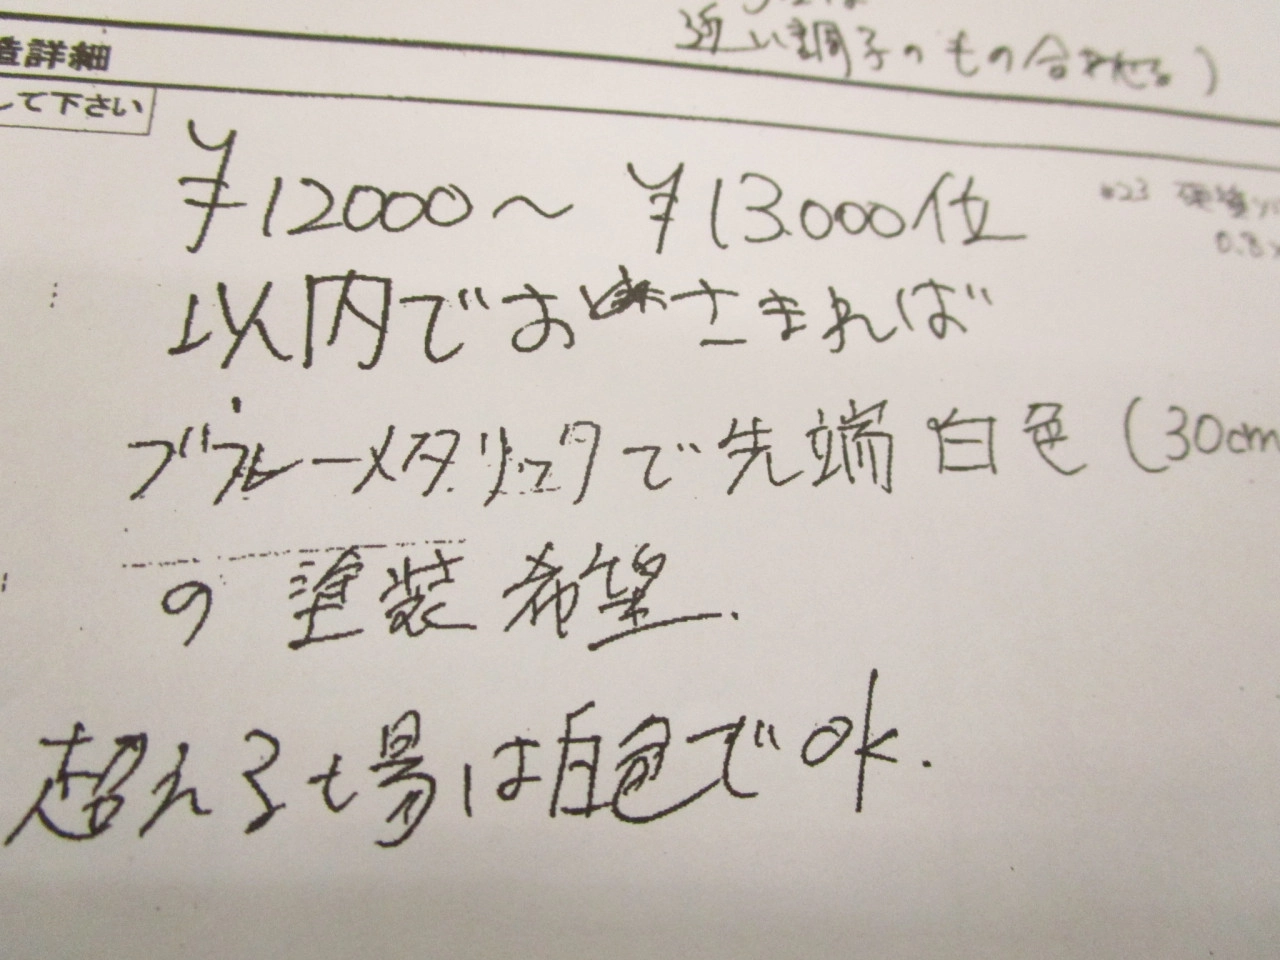 近い調子のもの合わせる)
造詳細
して下さい
¥12000〜¥13.000位
以内でおさまれば
ブルーメタリックで先端白色(30cm
の塗装希望.
超える場は白色でok.